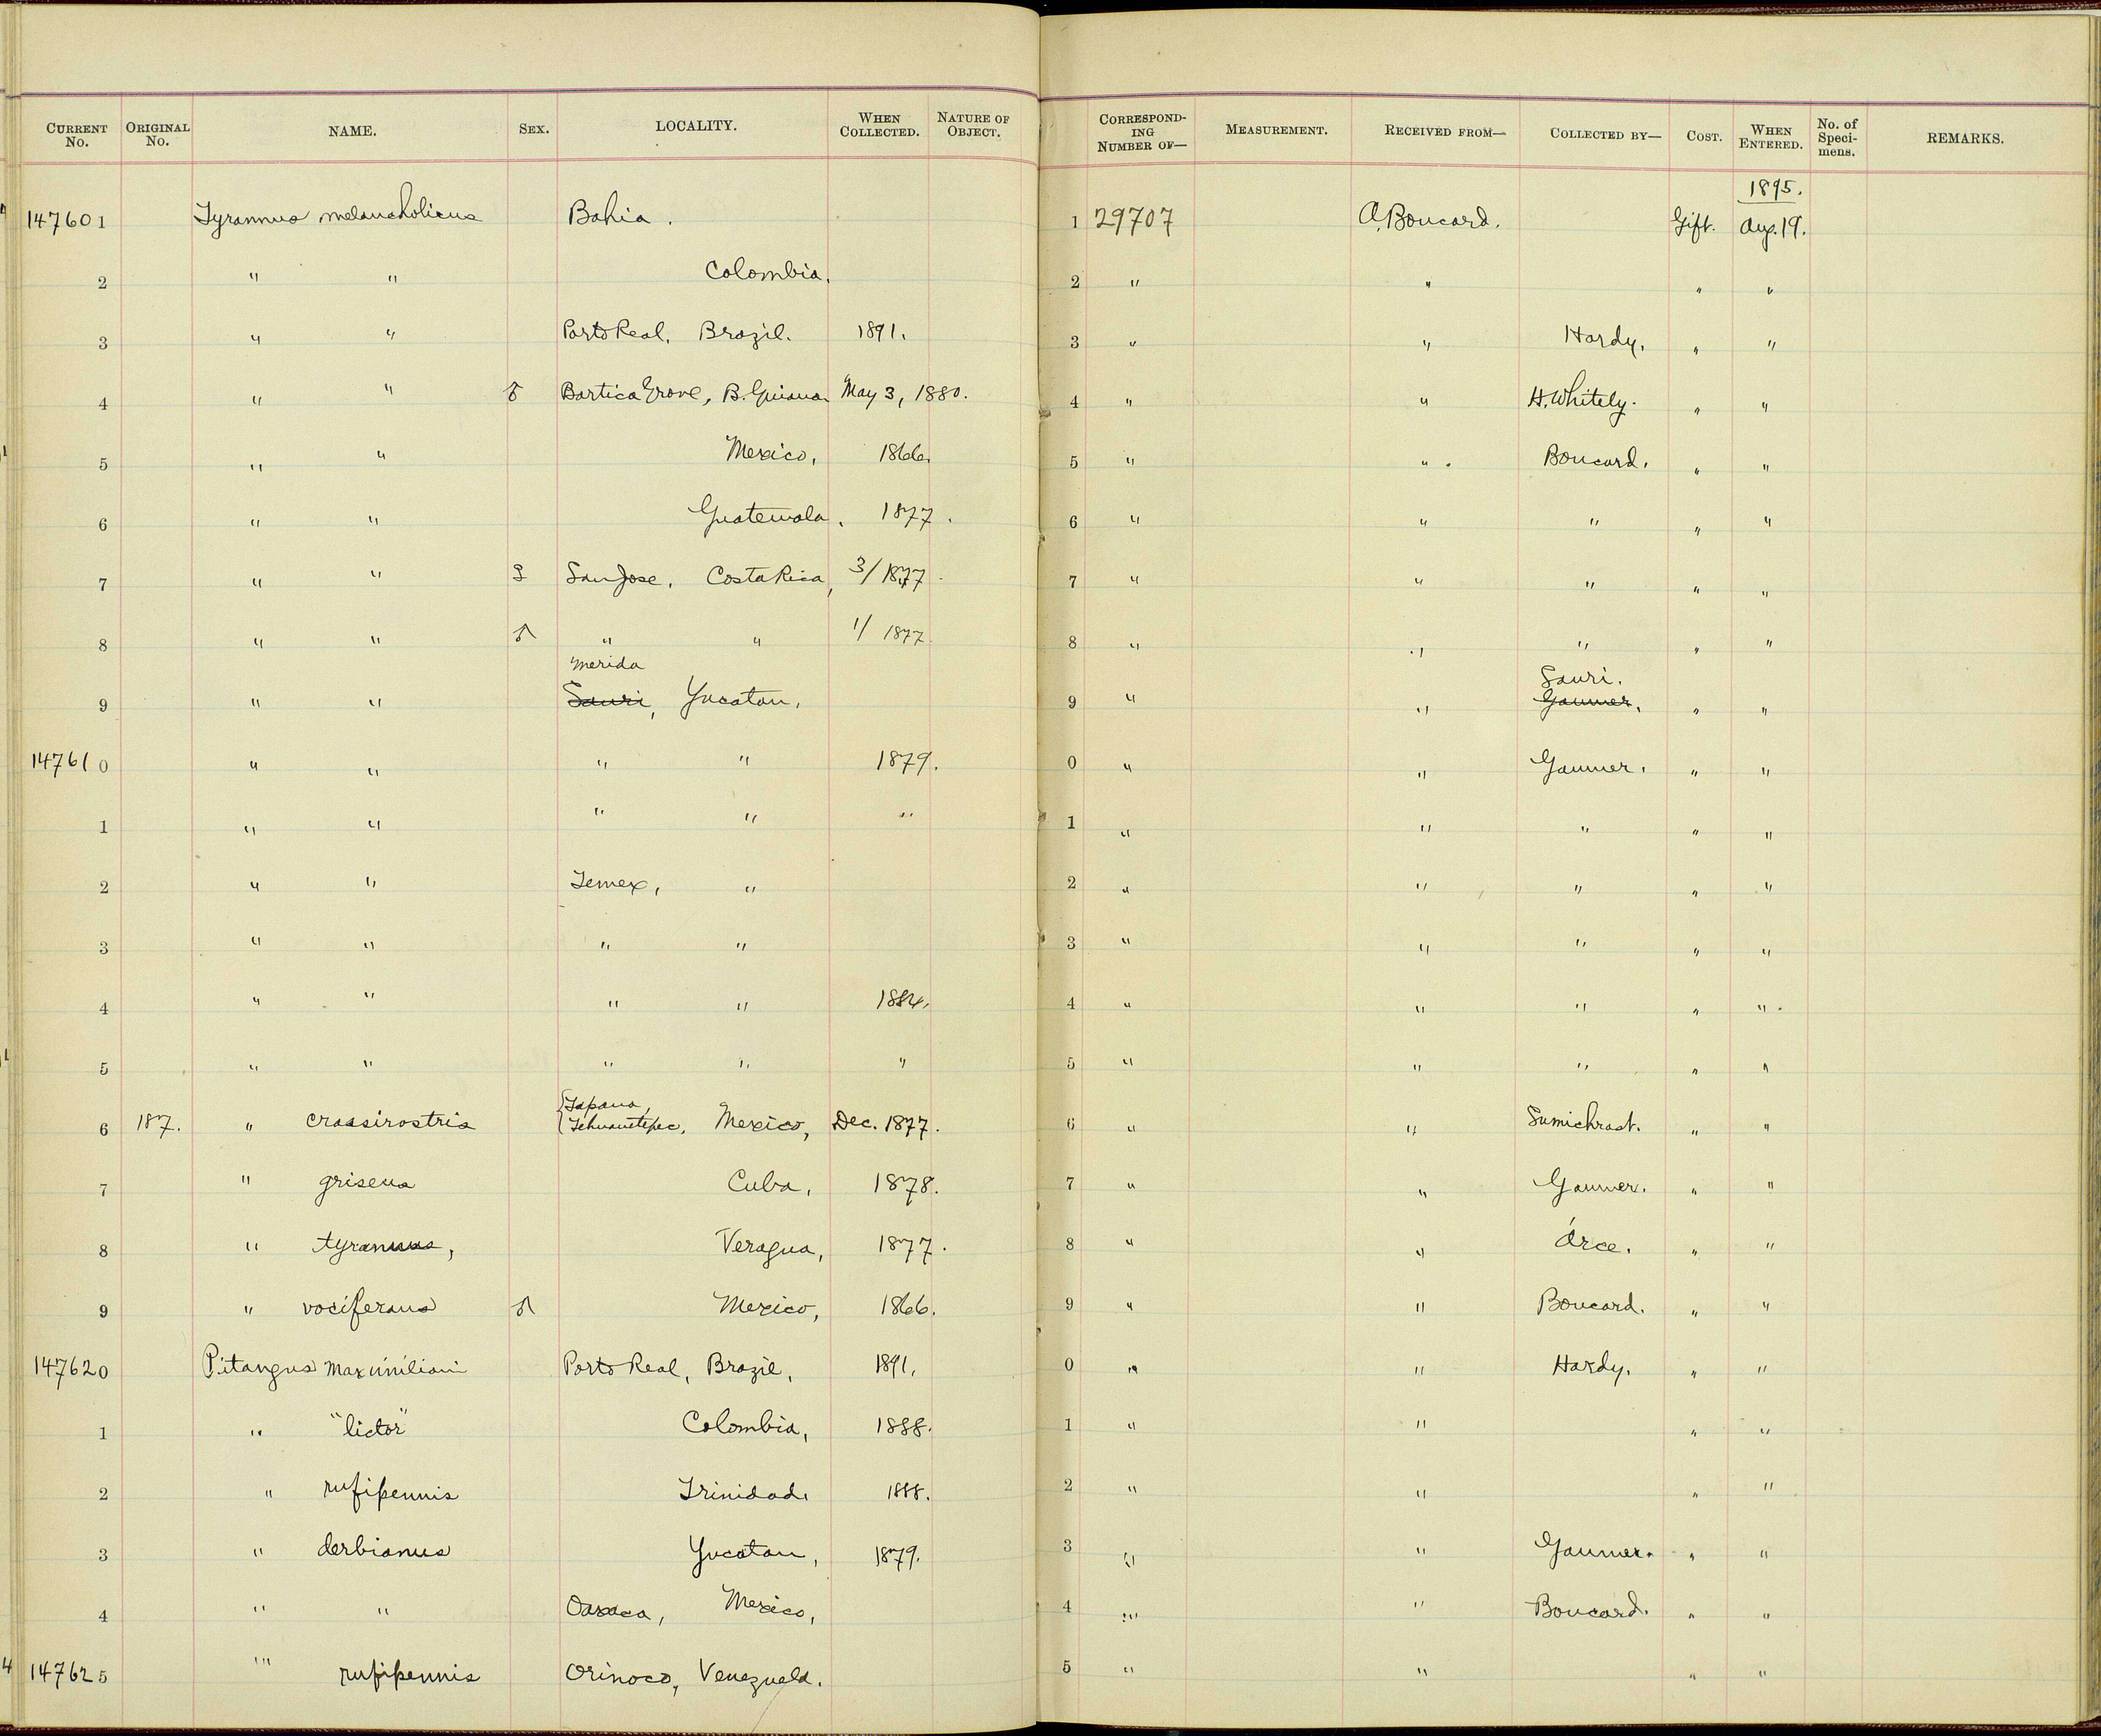 CURRENT No. ORIGINAL No. NAME. SEX. LOCALITY. WHEN COLLECTED. NATURE OF OBJECT. CORRESPONDING NUMBER OF— MEASUREMENT. RECEIVED FROM— COLLECTED BY— COST. WHEN ENTERED. No. of Specimens. REMARKS.
1895.
147601 Tyrannus melancholicus Bahia. 1 29707 A. Boucard. Gift. Aug. 19.
2 " " Colombia. 2 " " " "
3 " " Porto Real, Brazil. 1891. 3 " " Hardy. " "
4 " " ♂ Bartica Grove, B. Guiana May 3, 1880. 4 " " H. Whitely. " "
5 " " Mexico, 1866. 5 " " Boucard. " "
6 " " Guatemala, 1877. 6 " " " " "
7 " " ♀ San Jose, Costa Rica, 3/1877. 7 " " " " "
8 " " ♂ " " 1/1877. 8 " " " " "
Merida Gauri.
9 " " Sauri, Yucatan, 9 " " Gaumer. " "
147610 " " " " 1879. 0 " " Gaumer. " "
1 " " " " " 1 " " " " "
2 " " Temex, " 2 " " " " "
3 " " " " 3 " " " " "
4 " " " " 1884. 4 " " " " "
5 " " " " " 5 " " " " "
6 187. " crassirostris {Tapana, Tehuantepec, Mexico, Dec. 1877. 6 " " Sumichrast. " "
7 " griseus Cuba, 1878. 7 " " Gaumer. " "
8 " tyrannus, Veragua, 1877. 8 " " Arce. " "
9 " vociferans ♂ Mexico, 1866. 9 " " Boucard. " "
147620 Pitangus Maximiliani Porto Real, Brazil, 1891. 0 " " Hardy. " "
1 " "lictor" Colombia, 1888. 1 " " " "
2 " rufipennis Trinidad. 1888. 2 " " " "
3 " derbianus Yucatan, 1879. 3 " " Gaumer. " "
4 " " Oaxaca, Mexico, 4 " " Boucard. " "
147625 " rufipennis Orinoco, Venezuela. 5 " " " "